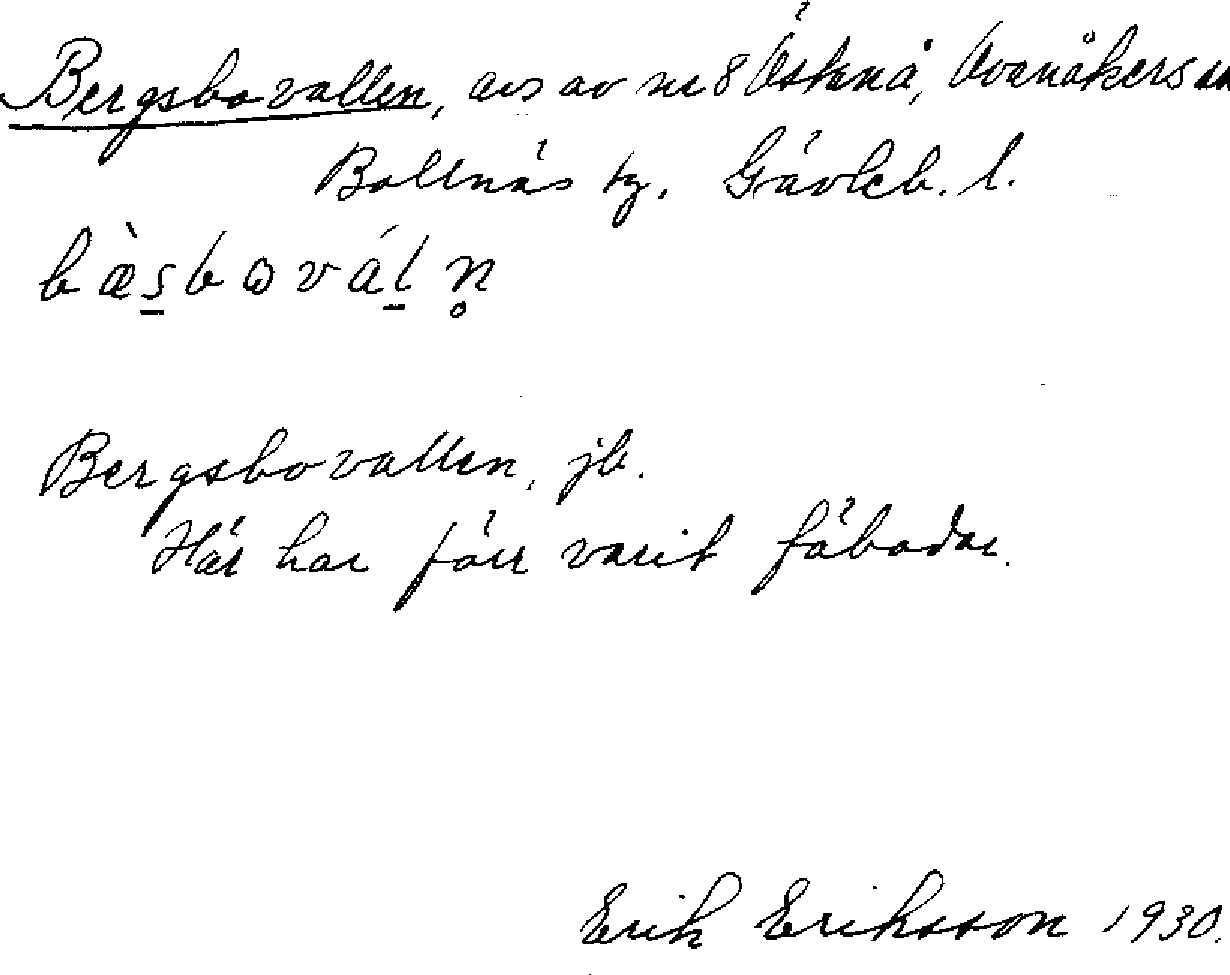 Bergsbovallen, avs av nr 8 Östanå, Ovanåkers sn
Bollnäs tg. Gävleb. l.
bæ̀s̠bovál̠n̥
Bergsbovallen, jb.
Här har förr varit fäbodar.
Erik Eriksson 1930.